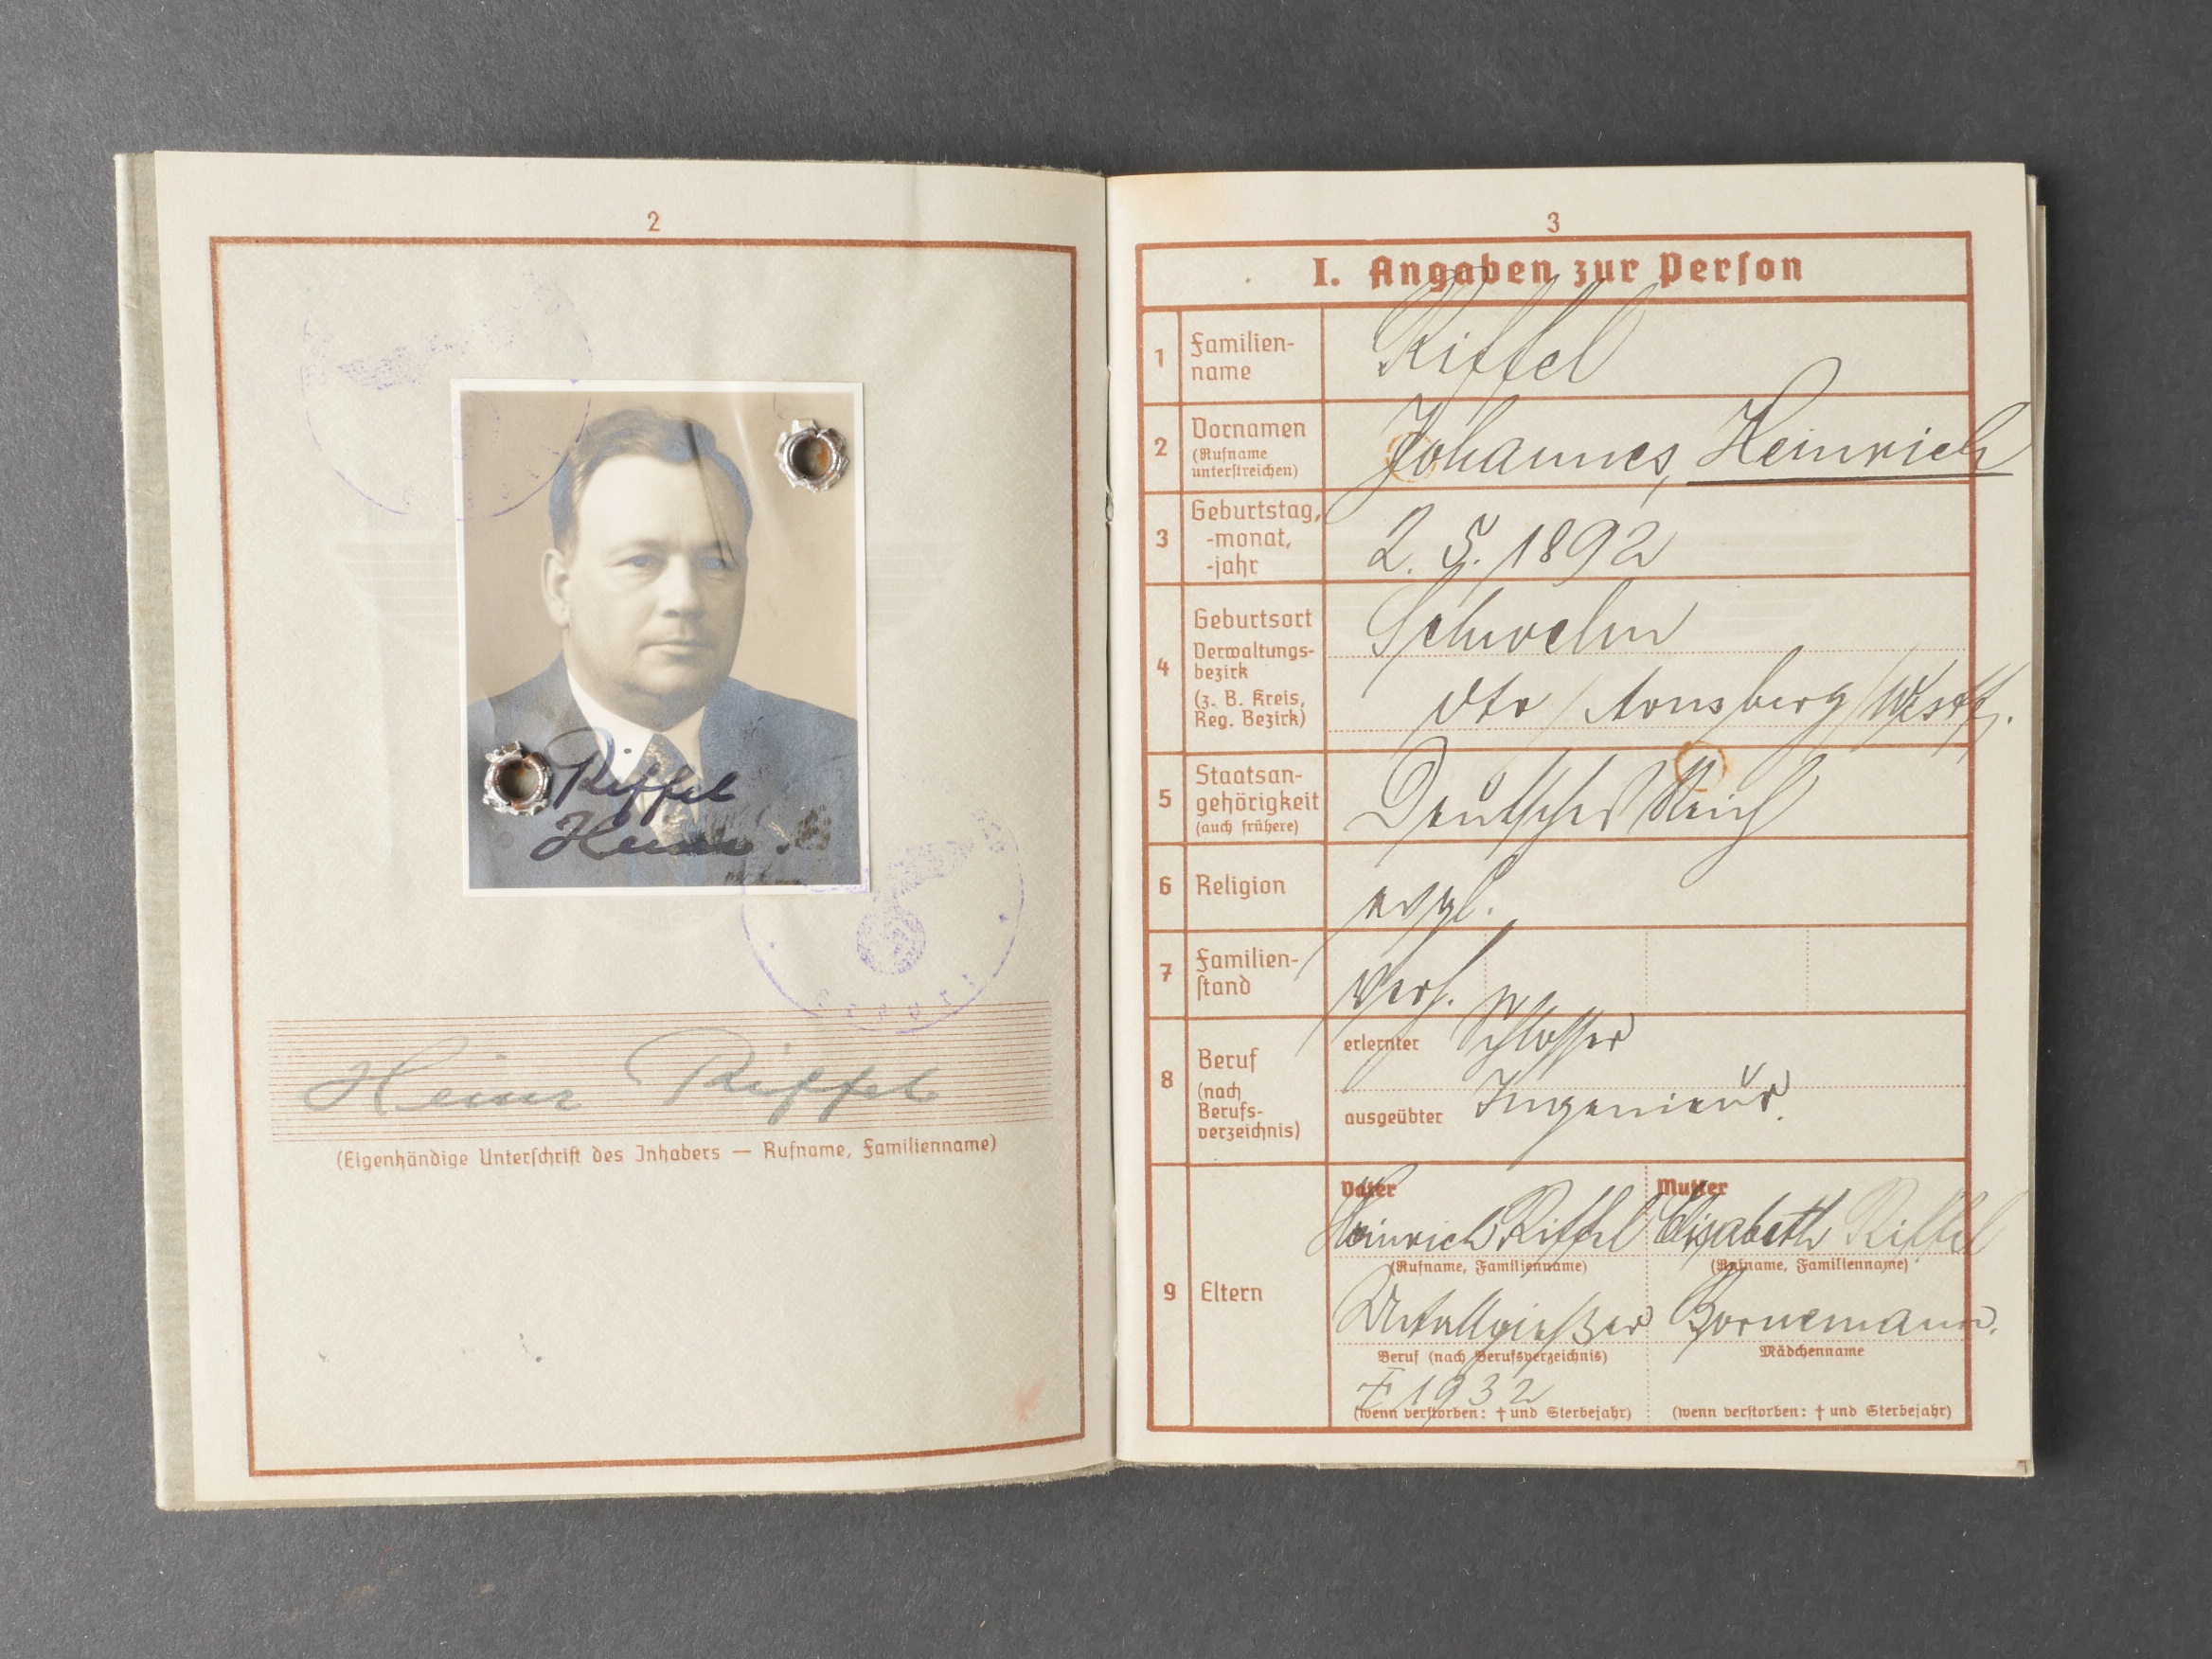 2
Riffel
Heinr.
Heinr Riffel
(Eigenhändige Unterschrift des Inhabers — Rufname, Familienname)
3
I. Angaben zur Person
1 Familien-
name
Riffel
2 Vornamen
(Rufname
unterstreichen)
Johannes, Heinrich
3 Geburtstag,
-monat,
-jahr
2. 5. 1892
4 Geburtsort
Verwaltungs-
bezirk
(z. B. Kreis,
Reg. Bezirk)
Schwelm
dto / Arnsberg / Westf.
5 Staatsan-
gehörigkeit
(auch frühere)
Deutsches Reich
6 Religion
evgl.
7 Familien-
stand
verh.
8 Beruf
(nach
Berufs-
verzeichnis)
erlernter Schlosser
ausgeübter Ingenieur
9 Eltern
Vater Mutter
Heinrich Riffel Elisabeth Riffel
(Rufname, Familienname) (Rufname, Familienname)
Metallgießer Bornemann.
Beruf (nach Berufsverzeichnis) Mädchenname
† 1932
(wenn verstorben: † und Sterbejahr) (wenn verstorben: † und Sterbejahr)